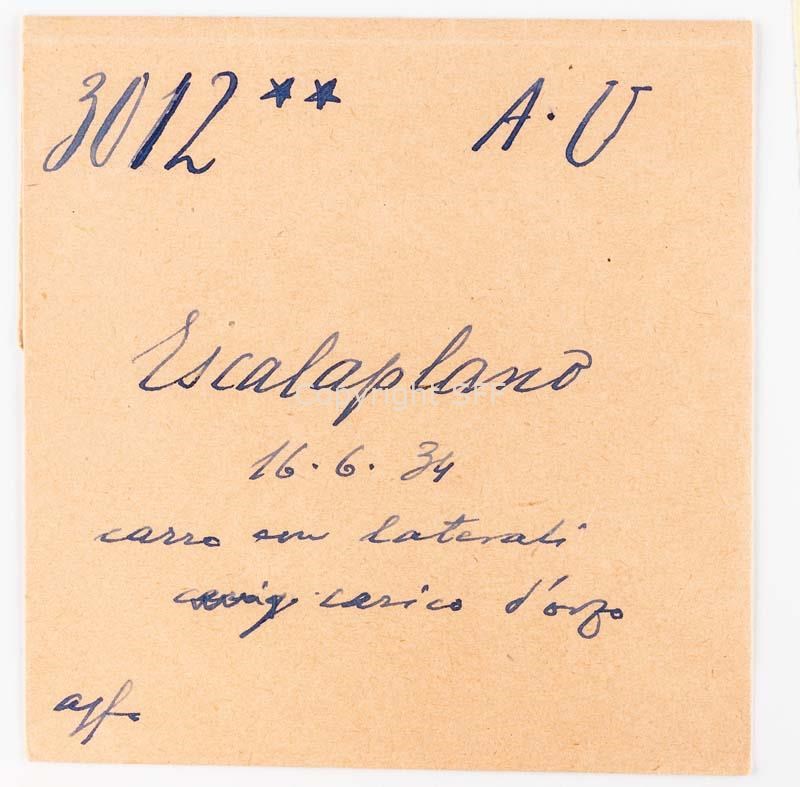 3012 ** A. U
Escalaplano
Copyright SFF
16. 6. 34
carro con laterali
carico d'orzo